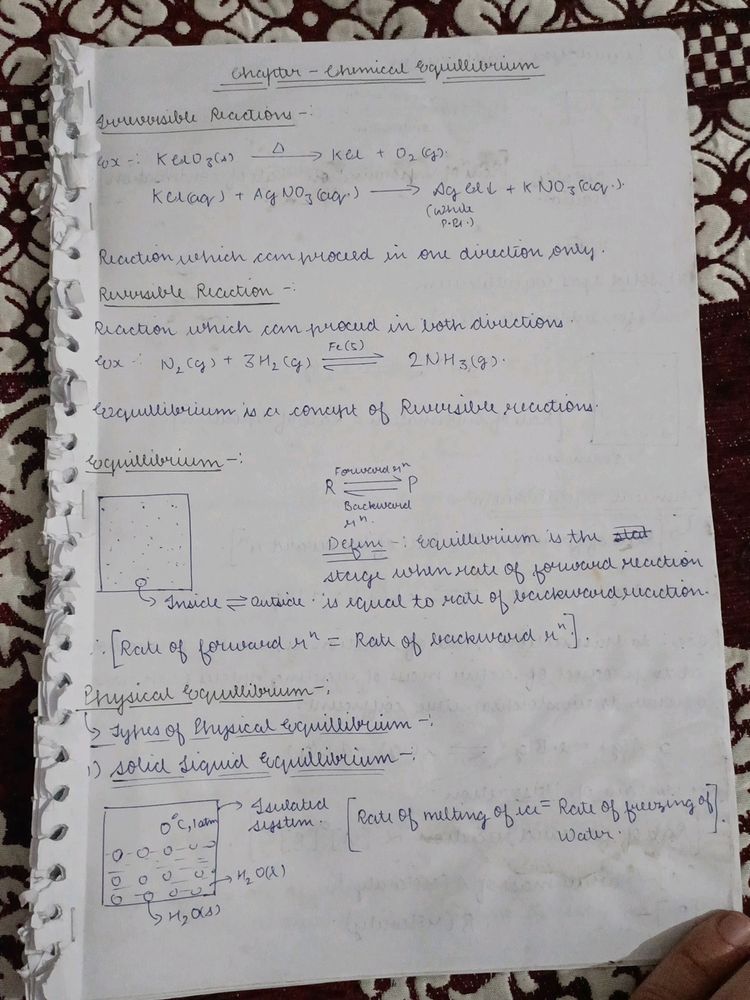 Chapter - Chemical Equillibrium
Irreversible Reactions -:
Ex -: KClO3(s) —Δ→ KCl + O2(g).
KCl(aq) + AgNO3(aq.) → AgCl↓ + KNO3(aq.).
(White
P.Pt.)
Reaction which can proceed in one direction only.
Reversible Reaction -:
Reaction which can proceed in both directions.
Fe(s)
Ex -: N2(g) + 3H2(g) ⇌ 2NH3(g).
Equillibrium is a concept of Reversible reactions.
Equillibrium -:
Forward rn
R ⇌ P
Backward
rn.
Define -: Equillibrium is the
stage when rate of forward reaction
is equal to rate of backward reaction.
Inside ⇌ Outside.
∴ [Rate of forward rn = Rate of backward rn].
Physical Equillibrium -:
↳ Types of Physical Equillibrium -:
1) Solid Liquid Equillibrium -:
0°C, 1 atm
→ Isulated
system.
[Rate of melting of ice = Rate of freezing of
Water.]
→ H2O(l)
↳ H2O(s)